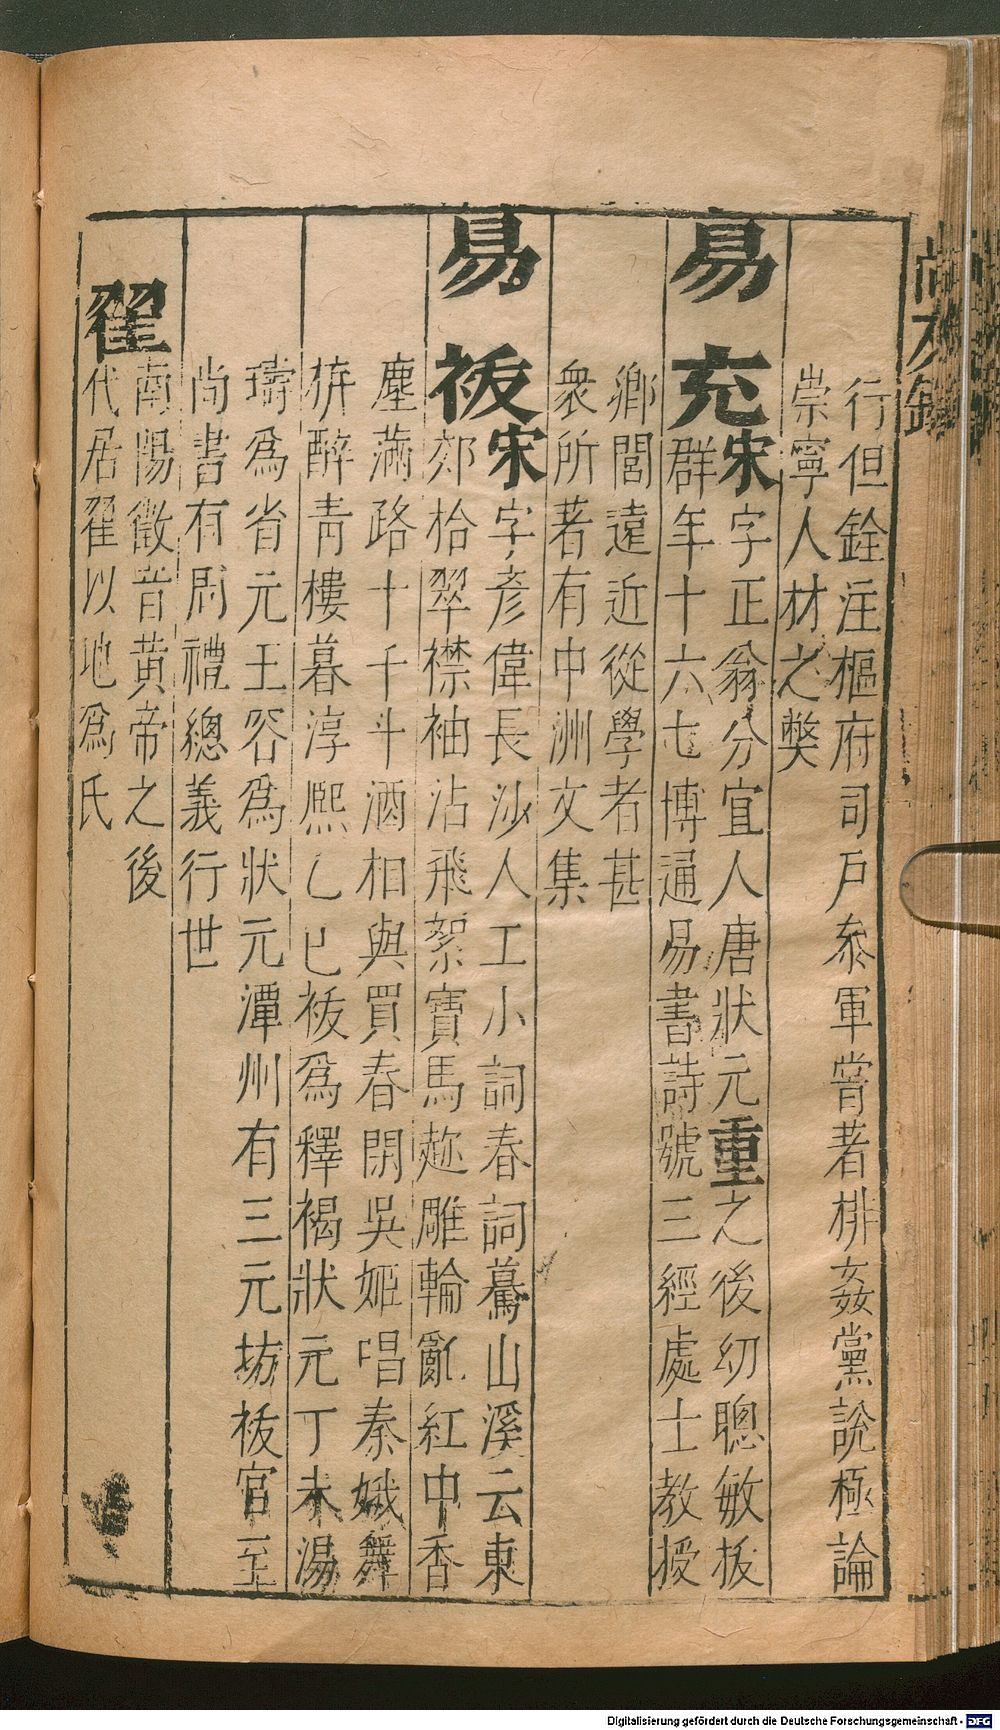 行但銓注樞府司戶叅軍嘗著排姦黨説極論
崇寧人材之獘
易充宋字正翁分宜人唐狀元重之後幼聰敏拔
群年十六七博通易書詩號三經處士教授
鄉閭遠近從學者甚
衆所著有中洲文集
易祓宋字彥偉長沙人工小詞春詞驀山溪云東
郊拾翠襟袖沾飛絮寶馬趂雕輪亂紅中香
塵滿路十千斗酒相與買春閑吳姬唱秦娥舞
拚醉青樓暮淳熙乙巳祓爲釋褐狀元丁未湯
璹爲省元王容爲狀元潭州有三元坊祓官至
尚書有周禮總義行世
翟南陽徵音黃帝之後
代居翟以地爲氏
尚友錄
Digitalisierung gefördert durch die Deutsche Forschungsgemeinschaft - DFG